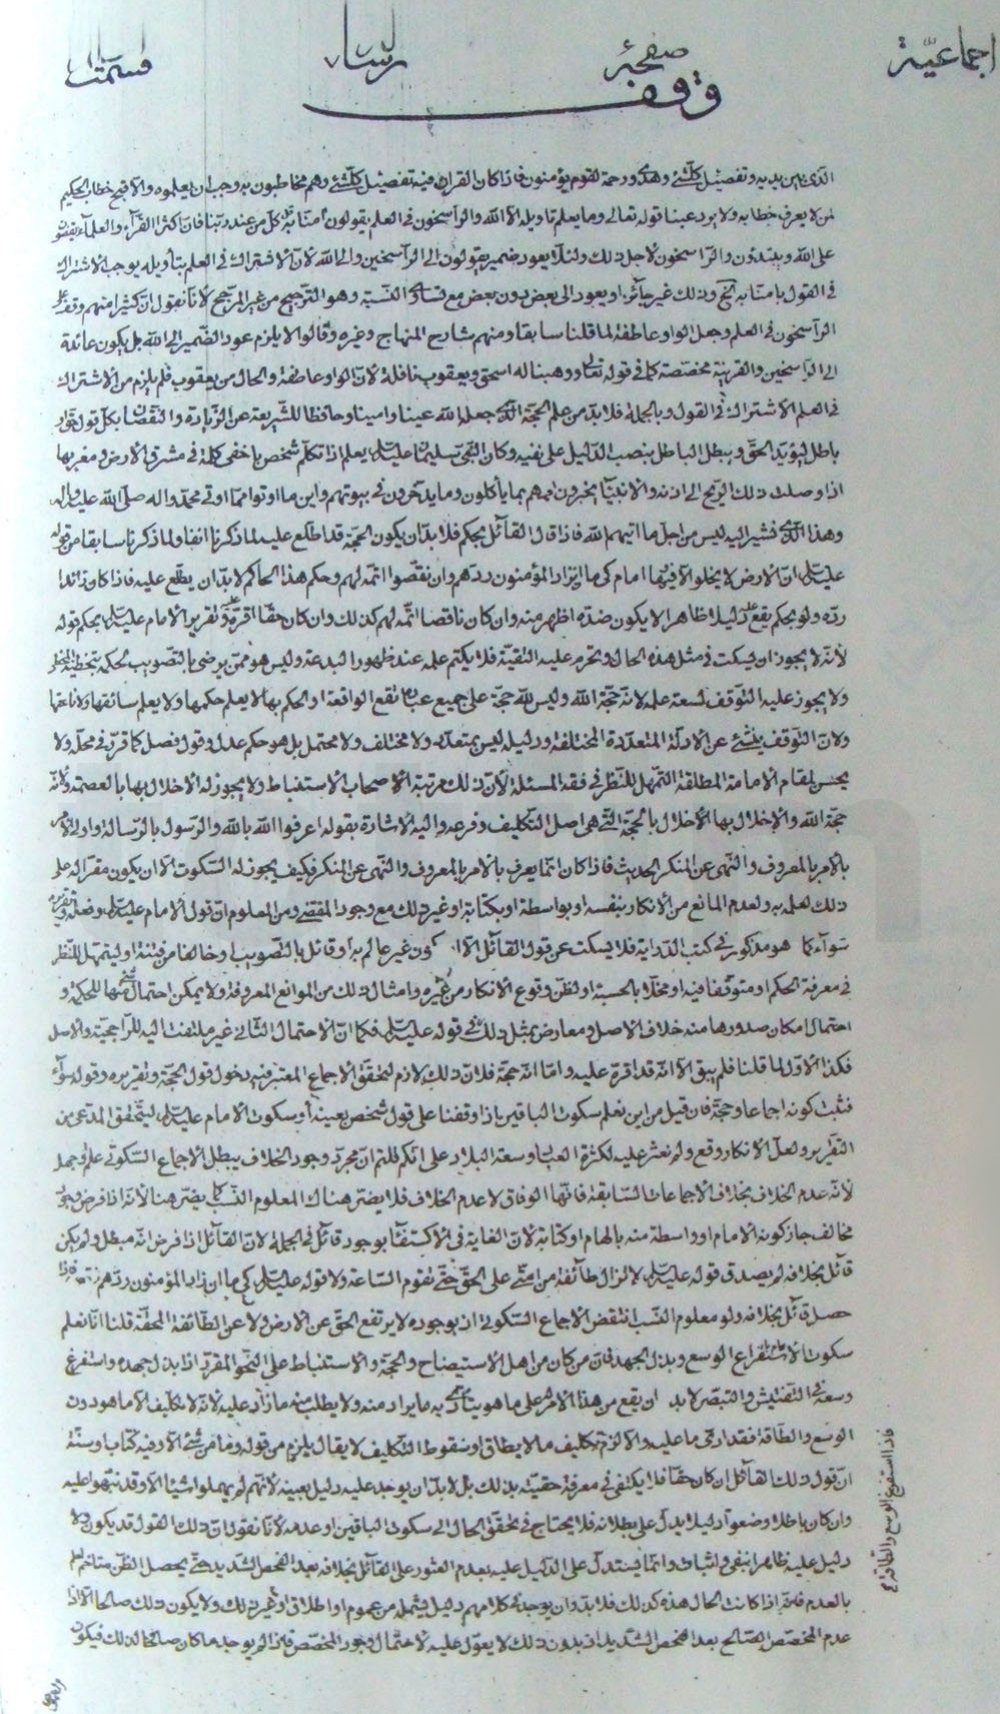 اجماعيّة صفحة رسا قسمت
وقف
الذى بين يديه وتفصيل كلشئ وهدى ورحمة لقوم يؤمنون فاذا كان القران فيه تفصيل كلشئ وهم مخاطبون به وجب ان يعلموه والا قبح خطاب الحكيم
لمن لا يعرف خطابه ولا يرد عينا قوله تعالى وما يعلم تاويله الا الله والراسخون فى العلم يقولون امنا به كل من عند ربنا فان اكثر القرآء والعلمآء يقفون
على الله ويبتدؤن والراسخون لاجل ذلك ولئلا يعود ضمير يقولون الى الراسخين والى الله لان الاشتراك فى العلم بتاويله يوجب الاشتراك
فى القول بامنا به الخ وذلك غير جآئز او يعود الى بعض دون بعض مع تساوى النسبة وهو الترجيح من غير المرجح لانا نقول ان كثيرا منهم وقف على
الراسخون فى العلم وجعل الواو عاطفة لما قلنا سابقا ومنهم شارح المنهاج وغيره وقالوا لا يلزم عود الضمير الى الله بل يكون عائدة
الى الراسخين والقرينة مخصصة كما فى قوله تعالى ووهبنا له اسحق ويعقوب نافلة لان الواو عاطفة والحال من يعقوب فلم يلزم من الاشتراك
فى العلم الاشتراك فى القول وبالجملة فلا بد من علم الحجة الذى جعله الله عينا وامينا وحافظا للشريعة عن الزيادة والنقصان بكل قول حق او
باطل ليؤيد الحق ويبطل الباطل بنصب الدليل على نفيه وكان النبى سليمان عليه السلام يعلم اذا تكلم شخص باخفى كلمة فى مشرق الارض ومغربها
اذا وصلت ذلك الريح الى اذنه والانبيآء يخبرون اممهم بما ياكلون وما يدخرون فى بيوتهم واين ما اوتوا مما اوتى محمد واله صلى الله عليه واله
وهذا الذى نشير اليه ليس من اجل ما اتيهم الله فاذا قال القآئل بحكم فلا بد ان يكون الحجة قد اطلع عليه لما ذكرنا انفا ولما ذكرنا سابقا من قوله
عليه السلام ان الارض لا يخلو الا وفيها امام كى ما ان زاد المؤمنون ردهم وان نقصوا اتمه لهم وحكم هذا الحاكم لا بد ان يطلع عليه فاذا كان زائدا
رده ولو بحكم يقع عليه دليلا ظاهرا لا يكون ضده اظهر منه وان كان ناقصا اتمه لهم كذلك وان كان حقا اقره وتقرير الامام عليه السلام بحكم قوله
لانه لا يجوز ان يسكت فى مثل هذه الحال ويحرم عليه التقية فلا يكتم علمه عند ظهور البدعة وليس هو ممن يرضى بالتصويب الحكم بتخطئة المخطى
ولا يجوز عليه التوقف لسعة علمه لانه حجة الله وليس لله حجة على جميع عباده تقع الواقعة او الحكم بها لا يعلم حكمها ولا يعلم سائقها ولا ناعقها
ولان التوقف ينشئ عن الادلة المتعددة المختلفة ودليله ليس بمتعدد ولا مختلف ولا محتمل بل هو حكم عدل وقول فصل كما قرر فى محله ولا
يحسن لمقام الامامة المطلقة التمهل للنظر فى فقه المسئلة لان ذلك مرتبة الاصحاب الاستنباط ولا يجوز له الاخلال بها بالعصمة ولانه
حجة الله والاخلال بها الاخلال بالحجة التى هى اصل التكليف وفرعه واليه الاشارة بقوله اعرفوا الله بالله والرسول بالرسالة واولى الامر
بالامر بالمعروف والنهى عن المنكر الحديث فاذا كان انما يعرف بالامر بالمعروف والنهى عن المنكر فكيف يجوز له السكوت الا ان يكون مقرا له على
ذلك لعلمه به ولعدم المانع من الانكار بنفسه او بواسطة او بكتابة او غير ذلك مع وجود المقتضى ومن المعلوم ان قول الامام عليه السلام وفعله وتقريره
سوآء كما هو مذكور فى كتب الدراية فلا يسكت عن قول القآئل الا كون غير عالم به او قائل بالتصويب او خائفا من فتنة او ليتمهل للنظر
فى معرفة الحكم او متوقفا فيه او مخلا بالحسبة او لظن وقوع الانكار من غيره وامثال ذلك من الموانع المعروفة ولا يمكن احتمال شئ منها للحكمة و
احتمال امكان صدورها منه خلاف الاصل ومعارض بمثل ذلك فى قوله عليه السلام فكما ان الاحتمال الثانى غير ملتفت اليه للراجحية والاصل
فكذا الاول لما قلنا فلم يبق الا انه قد اقره عليه واما انه حجة فلان ذلك لازم لتحقق الاجماع المعتبر فيه دخول قول الحجة وتقريره وقوله سوآء
فثبت كونه اجماعا وحجة فان قيل من اين نعلم سكوت الباقين اذا وقفنا على قول شخص بعينه او سكوت الامام عليه السلام ليتحقق المدعى من
التقرير ولعل الانكار وقع ولم نعثر عليه لكثرة العباد وسعة البلاد على انكم قلتم ان مجرد وجود الخلاف يبطل الاجماع السكوتى علم او جهل
لانه عدم الخلاف بخلاف الاجماعات السابقة فانها الوفاق لا عدم الخلاف فلا يضر هناك المعلوم النسب كما يضر هنا لانه اذا فرض وجود
مخالف جاز كونه الامام او واسطة منه بالهام او كتابة لان الغاية فى الاكتفآء بوجود قائل فى الجملة لان القآئل اذا فرض انه مبطل ولم يكن
قائل بخلافه لم يصدق قوله عليه السلام لا تزال طائفة من امتى على الحق حتى تقوم الساعة ولا قوله عليه السلام كى ما ان زاد المؤمنون ردهم فاذا
حصل قائل بخلافه ولو معلوم النسب انتقض الاجماع السكوتى اذ بوجوده لا يرتفع الحق عن الارض ولا عن الطائفة المحقة قلنا انا نعلم
سكوت الامام باستفراغ الوسع وبذل الجهد فان من كان من اهل الاستيضاح والحجة والاستنباط على النحو المقرر اذا بذل جهده واستفرغ
وسعه فى التفتيش والتبصر لا بد ان يقع من هذا الامر على ما هو يتادى به ما يراد منه ولا يطلب منه ما زاد عليه لانه لا تكليف الا ما هو دون
الوسع والطاقة فقد ادى ما عليه والا لزم تكليف ما لا يطاق او سقوط التكليف لا يقال يلزم من قوله وما من شئ الا وفيه كتاب او سنة
ان قول ذلك القآئل ان كان حقا فلا يكتفى فى معرفة حقيته بذلك بل لا بد ان يوجد عليه دليل بعينه لانهم لم يهملوا شيئا الا وقد نبهوا عليه
وان كان باطلا وضعوا دليلا يدل على بطلانه فلا يحتاج فى تحقق الحال الى سكوت الباقين او عدمه لانا نقول ان ذلك القول قد يكون لا
دليل عليه ظاهرا بنفى واثبات وانما يستدل على الدليل عليه بعدم العثور على القآئل بخلافه بعد الفحص الشديد حتى يحصل الظن متاخم العلم
بالعدم فانه اذا كانت الحال هذه كذلك فلا بد وان يوجد فى كلامهم دليل يشمله من عموم او اطلاق او غير ذلك ولا يكون ذلك صالحا الا اذا
عدم المخصص الصالح بعد الفحص الشديد اذ بدون ذلك لا يعول عليه لاحتمال وجود المخصص فاذا لم يوجد ما كان صالحا لذلك فيكون
فاذا استفرغ الوسع والطاقة